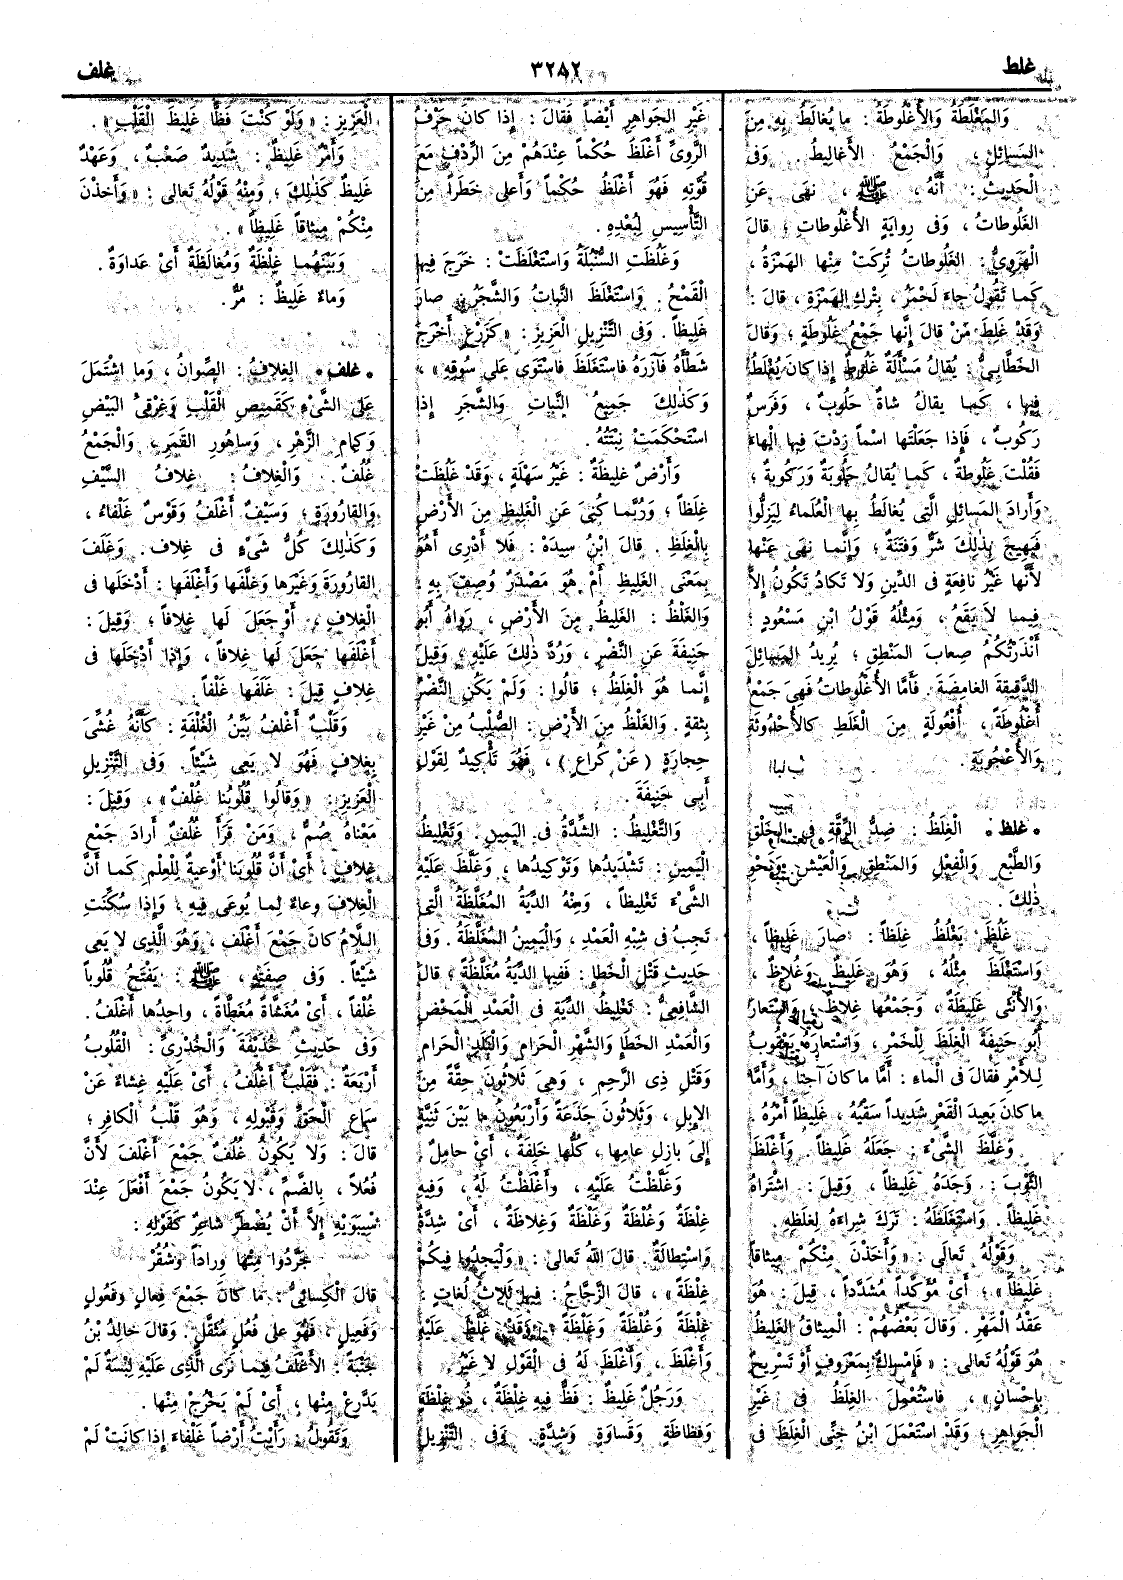 غلط
٣٢٨٢
غلف
وَالمَغْلَطَةُ وَالأُغْلُوطَةُ : ما يُغالَطُ بِهِ مِنَ
المَسائِلِ ، وَالْجَمْعُ الأَغالِيطُ . وَفى
الْحَدِيثِ : أَنَّهُ ، ﷺ ، نَهَى عَنِ
الغَلُوطاتِ ، وَفى رِوايَةٍ الأُغْلُوطاتِ ؛ قالَ
الْهَرَوِىُّ : الغَلُوطاتُ تُرِكَتْ مِنْها الهَمْزَةُ ،
كَما تَقُولُ جاءَ لَحْمَرُ ، بِتَركِ الهَمْزَةِ ، قالَ :
وَقَدْ غَلِطَ مَنْ قالَ إِنَّها جَمْعُ غَلُوطَةٍ ؛ وَقالَ
الخَطَّابِىُّ : يُقالُ مَسْأَلَةٌ غَلُوطٌ إِذا كانَ يُغْلَطُ
فِيها ، كَما يقالُ شاةٌ حَلُوبٌ ، وَفَرَسٌ
رَكُوبٌ ، فَإِذا جَعَلْتَها اسْماً زِدْتَ فِيها الْهاءَ
فَقُلْتَ غَلُوطَةٌ ، كَما يُقالُ حَلُوبَةٌ وَرَكُوبَةٌ ؛
وَأَرادَ المَسائِلَ الَّتى يُغالَطُ بِها الْعُلَماءُ لِيَزِلُّوا
فَيَهِيجَ بِذٰلِكَ شَرٌّ وَفِتْنَةٌ ؛ وَإِنَّما نَهَى عَنْها
لأَنَّها غَيْرُ نافِعَةٍ فى الدِّينِ وَلا تَكادُ تَكُونُ إِلاَّ
فِيما لا يَقَعُ ، وَمِثْلُهُ قَوْلُ ابْنِ مَسْعُودٍ ؛
أَنْذَرْتُكُمْ صِعابَ المَنْطِقِ ؛ يُرِيدُ المَسائِلَ
الدَّقِيقَةَ الغامِضَةَ . فَأَمَّا الأُغْلُوطاتُ فَهِىَ جَمْعُ
أُغْلُوطَةٍ ، أُفْعُولَةٍ مِنَ الغَلَطِ كالأُحْدُوثَةِ
وَالأُعْجُوبَةِ .
• غلظ • الْغِلَظُ : ضِدُّ الرِّقَّةِ فِى الخَلْقِ
وَالطَّبْعِ وَالْفِعْلِ وَالمَنْطِقِ وَالْعَيْشِ وَنَحْوِ
ذٰلِكَ .
غَلُظَ يَغْلُظُ غِلَظاً : صارَ غَلِيظاً ،
وَاسْتَغْلَظَ مِثْلُهُ ، وَهُوَ غَلِيظٌ وَغُلاظٌ ،
وَالأُنْثَى غَلِيظَةٌ ، وَجَمْعُها غِلاظٌ ، وَاسْتَعارَ
أَبُو حَنِيفَةَ الْغِلَظَ لِلْخَمْرِ ، وَاسْتعارَهُ يَعْقُوبُ
لِلأَمْرِ فَقالَ فى الْماءِ : أَمَّا ما كانَ آجِناً ، وَأَمَّا
ما كانَ بَعِيدَ الْقَعْرِ شَدِيداً سَقْيُهُ ، غَلِيظاً أَمْرُهُ .
وَغَلَّظَ الشَّىْءَ : جَعَلَهُ غَلِيظاً . وَأَغْلَظَ
الثَّوْبَ : وَجَدَهُ غَلِيظاً ، وَقِيلَ : اشْتَراهُ
غَلِيظاً . وَاسْتَغْلَظَهُ : تَرَكَ شِراءَهُ لِغِلَظِهِ .
وَقَوْلُهُ تَعالَى : « وَأَخَذْنَ مِنْكُمْ مِيثاقاً
غَلِيظاً » ؛ أَىْ مُؤَكَّداً مُشَدَّداً ، قِيلَ : هُوَ
عَقْدُ المَهْرِ . وَقالَ بَعْضُهُمْ : الْمِيثاقُ الْغَلِيظُ
هُوَ قَوْلُهُ تَعالَى : « فَإِمْساكٌ بِمَعْرُوفٍ أَوْ تَسْرِيحٌ
بِإِحْسانٍ » ، فَاسْتُعْمِلَ الغِلَظُ فى غَيْرِ
الْجَواهِرِ ؛ وَقَدْ اسْتَعْمَلَ ابْنُ جِنِّى الْغِلَظَ فى
غَيْرِ الجَواهِرِ أَيْضاً فَقالَ : إِذا كانَ حَرْفُ
الرَّوِىِّ أَغْلَظَ حُكْماً عِنْدَهُمْ مِنَ الرِّدْفِ مَعَ
قُوَّتِهِ فَهُوَ أَغْلَظُ حُكْماً وَأَعلَى خَطَراً مِنَ
التَّأْسِيسِ لِبُعْدِهِ .
وَغَلُظَتِ السُّنْبُلَةُ وَاسْتَغْلَظَتْ : خَرَجَ فِيها
الْقَمْحُ . وَاسْتَغْلَظَ النَّباتُ وَالشَّجَرُ صارَ
غَلِيظاً . وَفى التَّنْزِيلِ الْعَزِيزِ : « كَزَرْعٍ أَخْرَجَ
شَطْأَهُ فَآزَرَهُ فاسْتَغْلَظَ فاسْتَوَى عَلَى سُوقِهِ » ،
وَكَذٰلِكَ جَمِيعُ النَّباتِ وَالشَّجَرِ إِذا
اسْتَحْكَمَتْ نِبْتَتُهُ .
وَأَرْضٌ غَلِيظَةٌ : غَيْرُ سَهْلَةٍ ، وَقَدْ غَلُظَتْ
غِلَظاً ؛ وَرُبَّما كُنِىَ عَنِ الْغَلِيظِ مِنَ الأَرْضِ
بِالْغِلَظِ . قالَ ابْنُ سِيدَهْ : فَلا أَدْرِى أَهُوَ
بِمَعْنَى الغَلِيظِ أَمْ هُوَ مَصْدَرٌ وُصِفَ بِهِ ؛
وَالغَلْظُ : الغَلِيظُ مِنَ الأَرْضِ ، رَواهُ أَبُو
حَنِيفَةَ عَنِ النَّضْرِ ، وَرُدَّ ذٰلِكَ عَلَيْهِ ؛ وَقِيلَ
إِنَّما هُوَ الْغِلَظُ ؛ قالُوا : وَلَمْ يَكُنِ النَّضْرُ
بِثِقَةٍ . وَالغَلْظُ مِنَ الأَرْضِ : الصُّلْبُ مِنْ غَيْرِ
حِجارَةٍ (عَنْ كُراعٍ) ، فَهُوَ تَأْكِيدٌ لِقَوْلِ
أَبِى حَنِيفَةَ .
وَالتَّغْلِيظُ : الشِّدَّةُ فى الْيَمِينِ . وَتَغْلِيظُ
الْيَمِينِ : تَشْدِيدُها وَتَوْكِيدُها ، وَغَلَّظَ عَلَيْهِ
الشَّىْءَ تَغْلِيظاً ، وَمِنْهُ الدِّيَةُ المُغَلَّظَةُ الَّتِى
تَجِبُ فى شِبْهِ الْعَمْدِ ، وَالْيَمِينُ الْمُغَلَّظَةُ . وَفى
حَدِيثِ قَتْلِ الْخَطَإِ : فَفِيها الدِّيَةُ مُغَلَّظَةً ؛ قالَ
الشَّافِعِىُّ : تَغْلِيظُ الدِّيَةِ فى الْعَمْدِ الْمَحْضِ
وَالْعَمْدِ الْخَطَإِ وَالشَّهْرِ الْحَرامِ وَالْبَلَدِ الْحَرامِ
وَقَتْلِ ذِى الرَّحِمِ ، وَهِىَ ثَلاثُونَ حِقَّةً مِنَ
الإِبِلِ ، وَثَلاثُونَ جَذَعَةً وَأَرْبَعُونَ ما بَيْنَ ثَنِيَّةٍ
إِلَىَ بازِلِ عامِها ، كُلُّها خَلِفَةٌ ، أَىْ حامِلٌ .
وَغَلَّظْتُ عَلَيْهِ ، وَأَغْلَظْتُ لَهُ ، وَفِيهِ
غِلْظَةٌ وَغُلْظَةٌ وَغَلْظَةٌ وَغِلاظَةٌ ، أَىْ شِدَّةٌ
وَاسْتِطالَةٌ . قالَ اللهُ تَعالَى : « وَلْيَجِدُوا فِيكُمْ
غِلْظَةً » ، قالَ الزَّجَّاجُ : فِيها ثَلاثُ لُغاتٍ :
غِلْظَةٌ وَغُلْظَةٌ وَغَلْظَةٌ ؛ وَقَدْ غَلَّظَ عَلَيْهِ
وَأَغْلَظَ ، وَأَغْلَظَ لَهُ فى الْقَوْلِ لا غَيْرُ .
وَرَجُلٌ غَلِيظٌ : فَظٌّ فِيهِ غِلْظَةٌ ، ذُو غِلْظَةٍ
وَفَظاظَةٍ وَقَساوَةٍ وَشِدَّةٍ . وَفى التَّنْزِيلِ
الْعَزِيزِ : « وَلَوْ كُنْتَ فَظًّا غَلِيظَ الْقَلْبِ » .
وَأَمْرٌ غَلِيظٌ : شَدِيدٌ صَعْبٌ ، وَعَهْدٌ
غَلِيظٌ كَذٰلِكَ ؛ وَمِنْهُ قَوْلُهُ تَعالى : « وَأَخَذْنَ
مِنْكُمْ مِيثاقاً غَلِيظاً » .
وَبَيْنَهُما غِلْظَةٌ وَمُغالَظَةٌ أَىْ عَداوَةٌ .
وَماءٌ غَلِيظٌ : مُرٌّ .
• غلف • الغِلافُ : الصِّوانُ ، وَما اشْتَمَلَ
عَلَى الشَّىْءِ كَقَمِيصِ الْقَلْبِ وَغِرْقِئِ الْبَيْضِ
وَكِمامِ الزَّهْرِ ، وَساهُورِ القَمَرِ ، وَالْجَمْعُ
غُلُفٌ . وَالْغِلافُ : غِلافُ السَّيْفِ
وَالقارُورَةِ ؛ وَسَيْفٌ أَغْلَفُ وَقَوْسٌ غَلْفاءُ ،
وَكَذٰلِكَ كُلُّ شَىْءٍ فى غِلافٍ . وَغَلَفَ
القارُورَةَ وَغَيْرَها وَغَلَّفَها وَأَغْلَفَها : أَدْخَلَها فى
الْغِلافِ ، أَوْ جَعَلَ لَها غِلافاً ؛ وَقِيلَ :
أَغْلَفَها جَعَلَ لَها غِلافاً ، وَإِذا أَدْخَلَها فى
غِلافٍ قِيلَ : غَلَفَها غَلْفاً .
وَقَلْبٌ أَغْلَفُ بَيِّنُ الْغُلْفَةِ : كَأَنَّهُ غُشِّىَ
بِغِلافٍ فَهُوَ لا يَعِى شَيْئاً . وَفى التَّنْزِيلِ
الْعَزِيزِ : « وَقالُوا قُلُوبُنا غُلْفٌ » ، وَقِيلَ :
مَعْناهُ صُمٌّ ، وَمَنْ قَرَأَ غُلُفٌ أَرادَ جَمْعَ
غِلافٍ ، أَىْ أَنَّ قُلُوبَنا أَوْعِيَةٌ لِلْعِلْمِ كَما أَنَّ
الْغِلافَ وِعاءٌ لِما يُوعَى فِيهِ ، وَإِذا سُكِّنَتِ
اللَّامُ كانَ جَمْعَ أَغْلَفَ ، وَهُوَ الَّذِى لا يَعِى
شَيْئاً . وَفى صِفَتِهِ ، ﷺ : يَفْتَحُ قُلُوباً
غُلْفاً ، أَىْ مُغَشَّاةً مُغَطَّاةً ، واحِدُها أَغْلَفُ .
وَفى حَدِيثِ حُذَيْفَةَ وَالْخُدْرِىِّ : الْقُلُوبُ
أَرْبَعَةٌ : فَقَلْبٌ أَغْلَفُ ، أَىْ عَلَيْهِ غِشاءٌ عَنْ
سَماعِ الْحَقِّ وَقَبُولِهِ ، وَهُوَ قَلْبُ الْكافِرِ ؛
قالَ : وَلا يَكُونُ غُلُفٌ جَمْعَ أَغْلَفَ لأَنَّ
فُعُلاً ، بِالضَّمِّ ، لا يَكُونُ جَمْعَ أَفْعَلَ عِنْدَ
سِيبَوَيْهِ إِلاَّ أَنْ يُضْطَرَّ شاعِرٌ كَقَوْلِهِ :
جَرَّدُوا مِنْها وِراداً وَشُقُرْ
قالَ الْكِسائِىُّ : ما كانَ جَمْعَ فِعالٍ وَفَعُولٍ
وَفَعِيلٍ ، فَهُوَ عَلى فُعُلٍ مُثَقَّلٍ . وَقالَ خالِدُ بْنُ
جَنْبَةَ : الأَغْلَفُ فِيما نَرَى الَّذِى عَلَيْهِ لِبْسَةٌ لَمْ
يَدَّرِعْ مِنْها ، أَىْ لَمْ يَخْرُجْ مِنْها .
وَتَقُولُ : رَأَيْتُ أَرْضاً غَلْفاءَ إِذا كانَتْ لَمْ